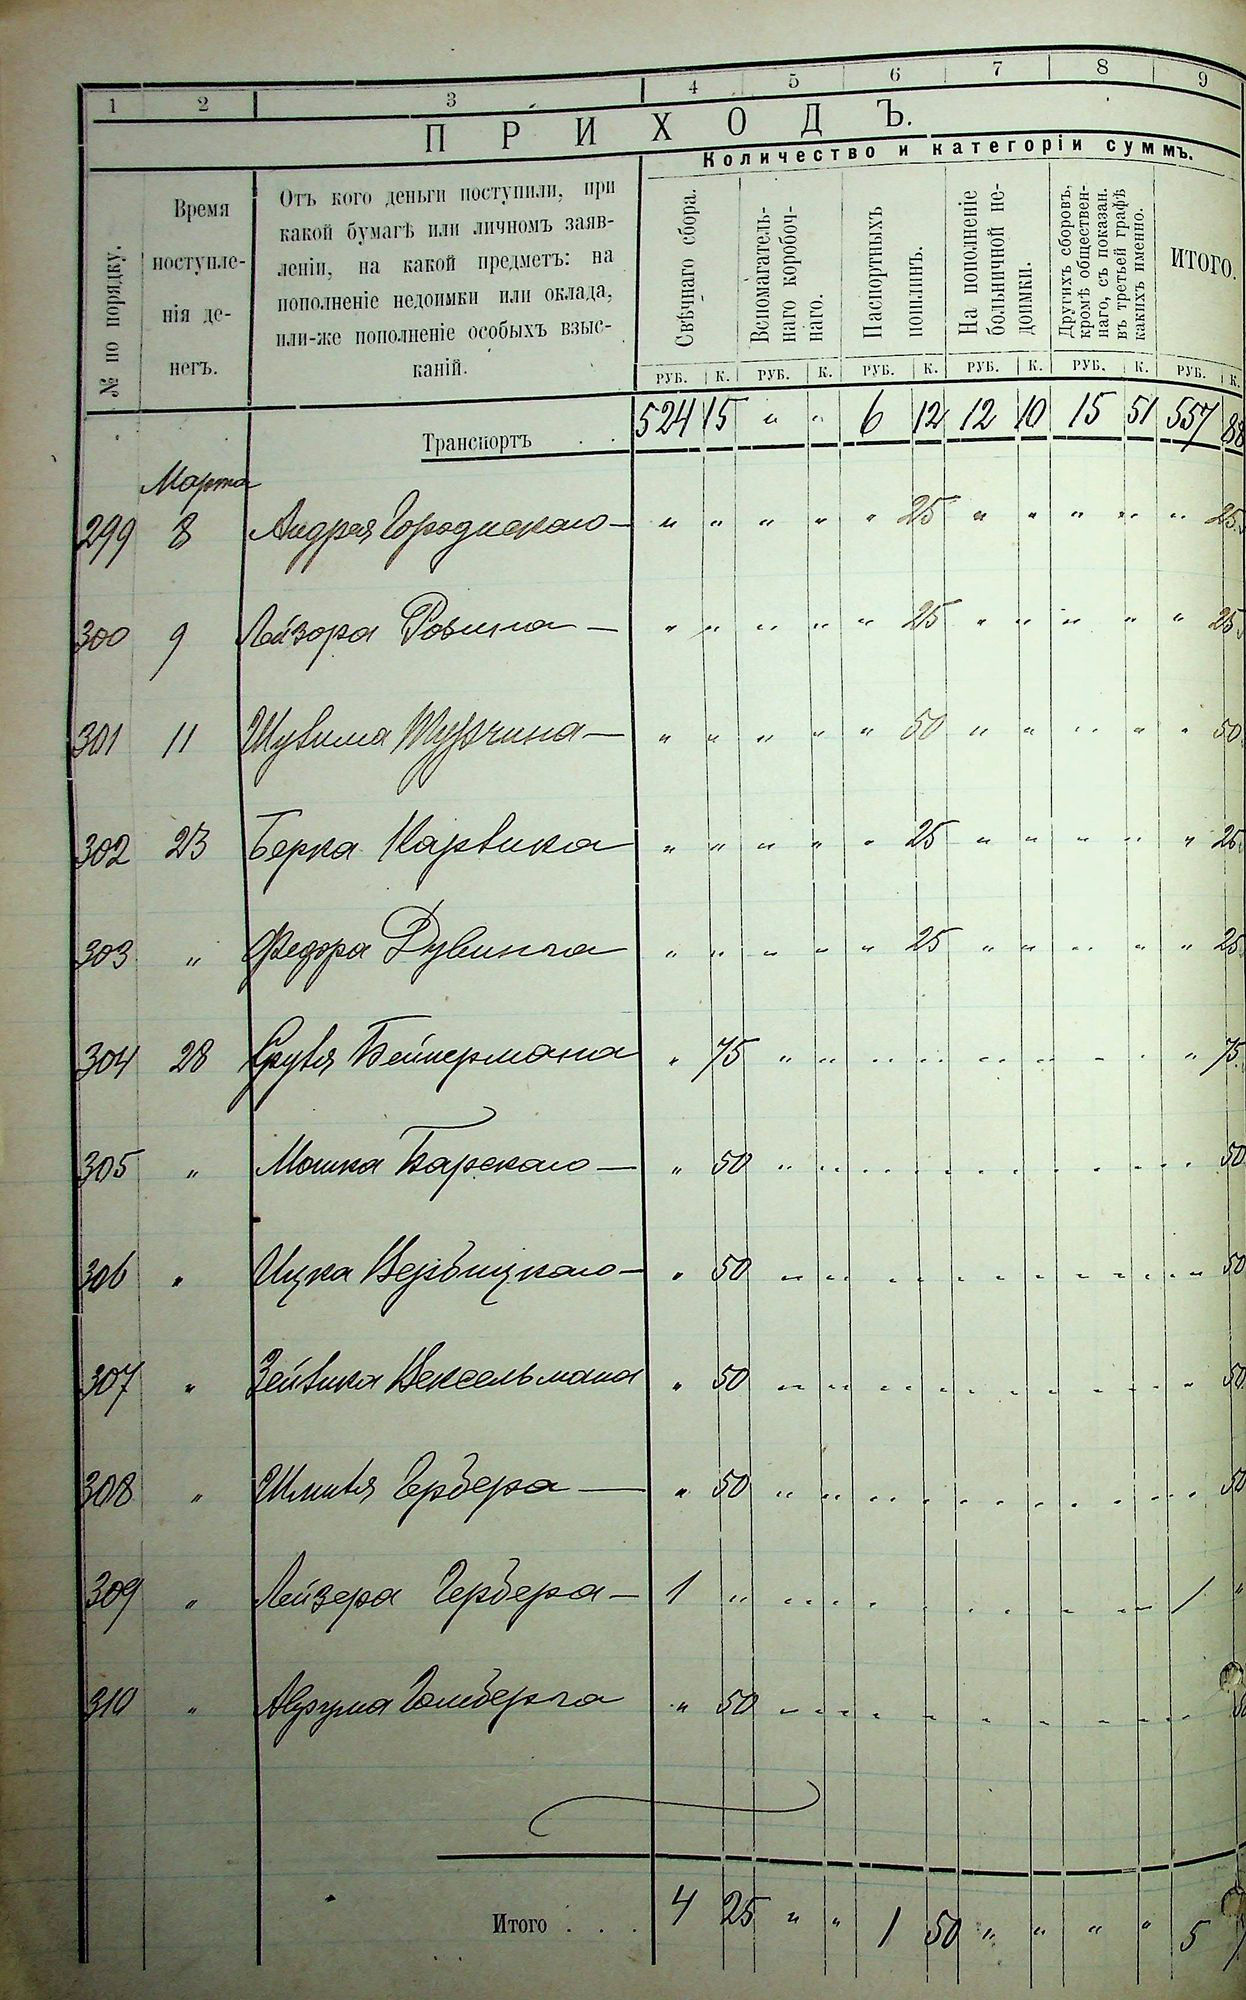 1 2 3 4 5 6 7 8 9
ПРИХОДЪ.
Количество и категоріи суммъ.
№ по порядку.
Время
поступле-
нія де-
негъ.
Отъ кого деньги поступили, при
какой бумагѣ или личномъ заяв-
леніи, на какой предметъ: на
пополненіе недоимки или оклада,
или-же пополненіе особыхъ взыс-
каній.
Свѣчнаго сбора.
Вспомагатель-
наго коробоч-
наго.
Паспортныхъ
пошлинъ.
На пополненіе
больничной не-
доимки.
Другихъ сборовъ,
кромѣ обществен-
наго, съ показан.
въ третьей графѣ
какихъ именно.
ИТОГО.
РУБ. К. РУБ. К. РУБ. К. РУБ. К. РУБ. К. РУБ. К.
Транспортъ . . 524 15 " " 6 12 12 10 15 51 557 88
Марта
299 8 Андрея Городискаго — " " " " " 25 " " " " " 25
300 9 Лейзора Розина — " " " " " 25 " " " " " 25
301 11 " " " " " 50 " " " " " 50
302 23 Берка Карвика " " " " " 25 " " " " " 25
303 " Федора " " " " " 25 " " " " " 25
304 28 Бейнермана " 75 " " " " " " " " " 75
305 " Мошка Барскаго — " 50 " " " " " " " " " 50
306 " Ицка Вербицкаго — " 50 " " " " " " " " " 50
307 " Зейвика Вексельмана " 50 " " " " " " " " " 50
308 " Гербера — " 50 " " " " " " " " " 50
309 " Лейзера Гербера — 1 " " " " " " " " " 1 "
310 " Аврума Гольберга " 50 " " " " " " " " "
Итого . . . 4 25 " " 1 50 " " " " 5